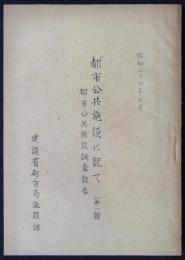 昭和二十四年七月
都市公共施設に就て (第二報)
都市公共施設調査報告
建設省都市局施設課